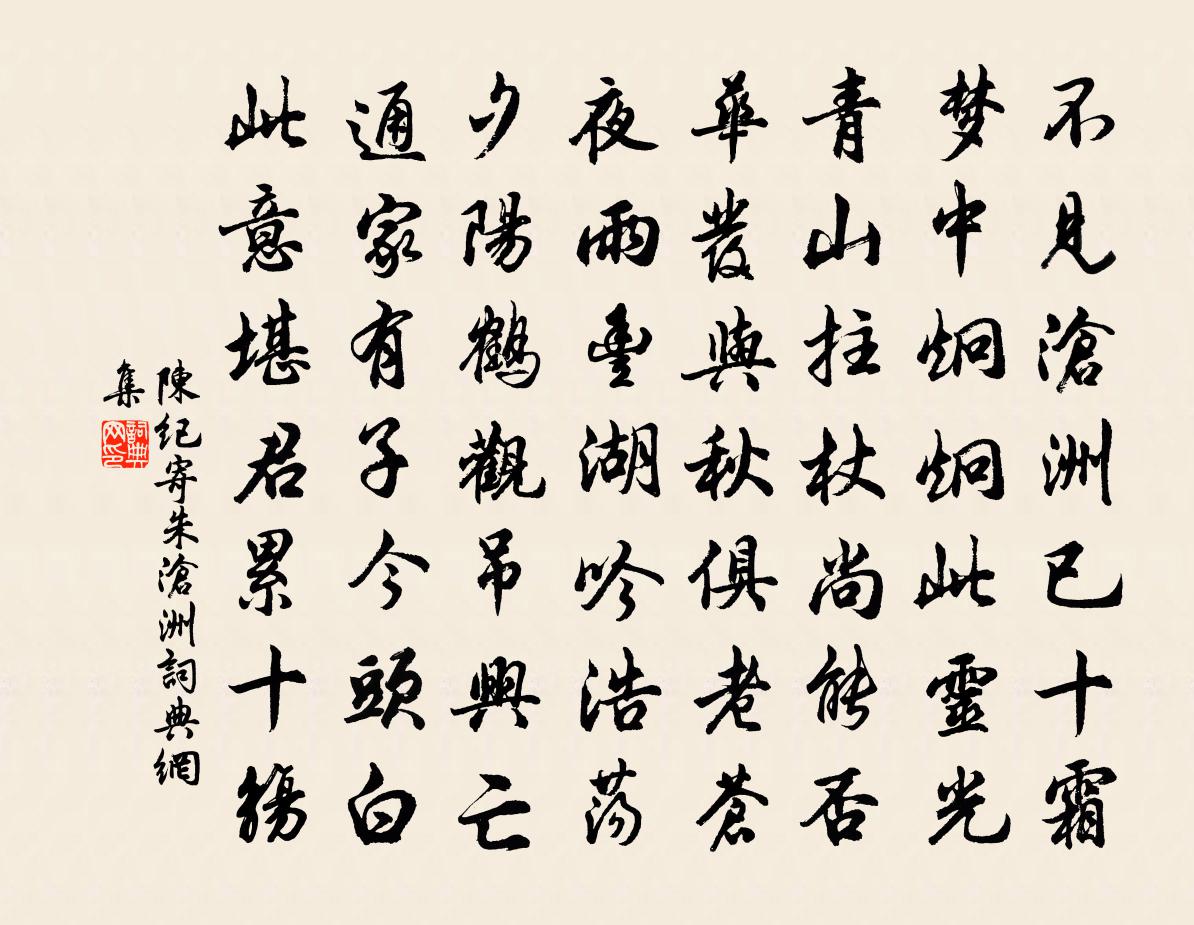 不見滄洲已十霜
梦中炯炯此靈光
青山拄杖尚能否
華發與秋俱老蒼
夜雨重湖吟浩荡
夕陽鶴觀吊興亡
通家有子今頭白
此意堪君累十觴
陳紀寄朱滄洲詞典網
集
詞典
网印